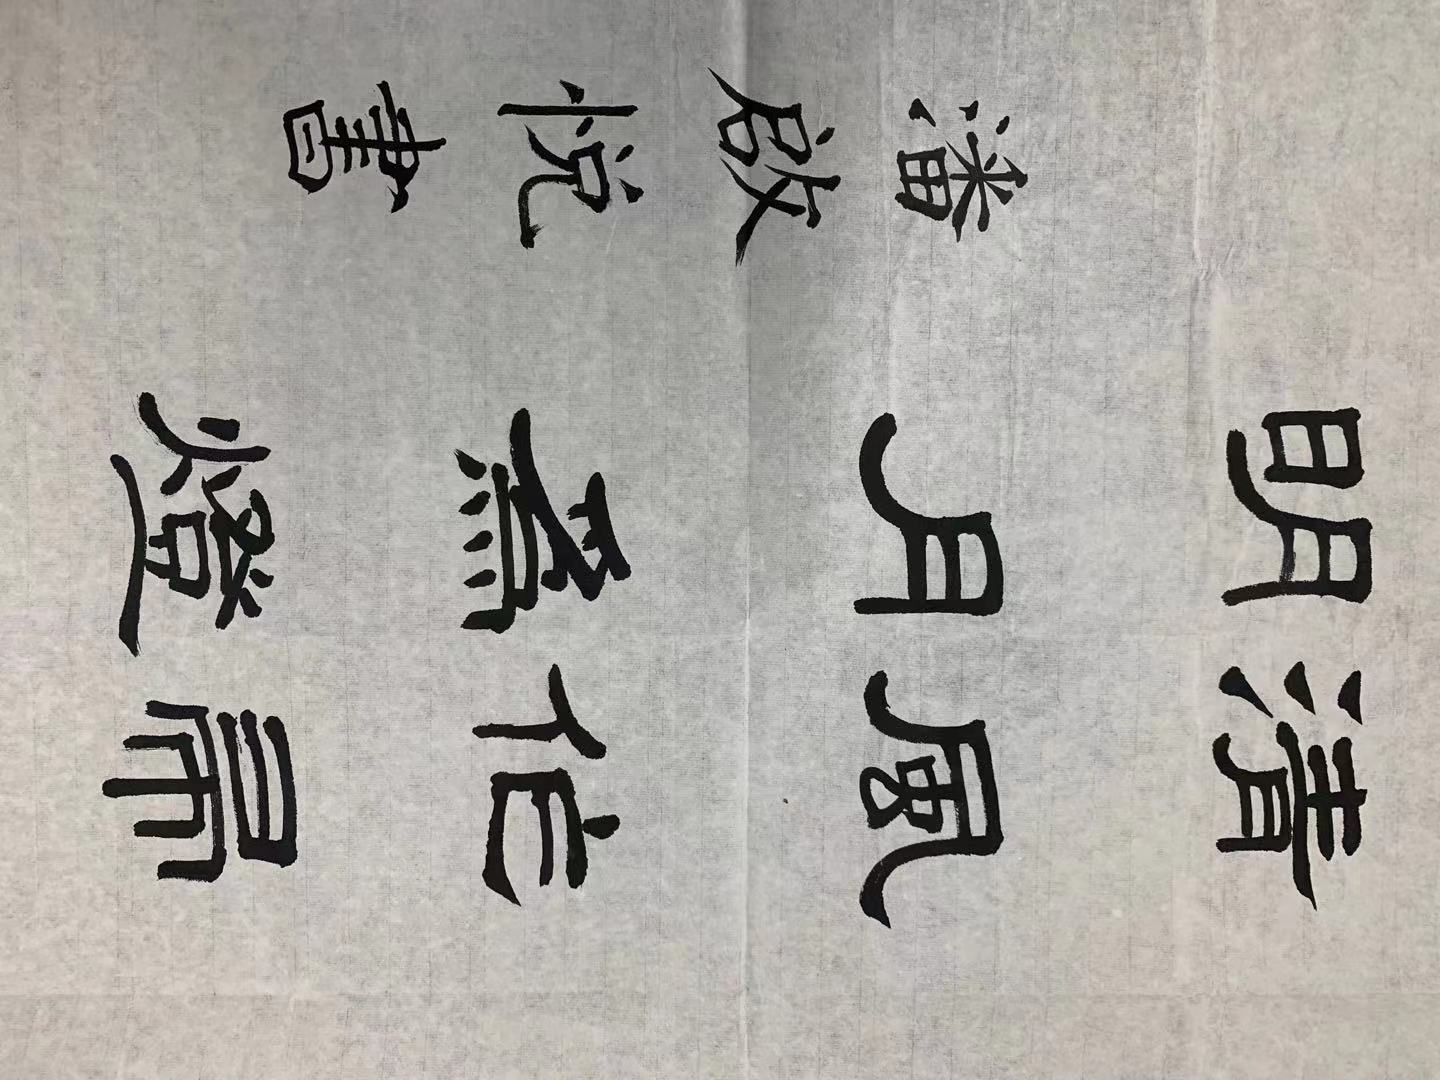 清風作帚
明月為燈
潘啟悦書